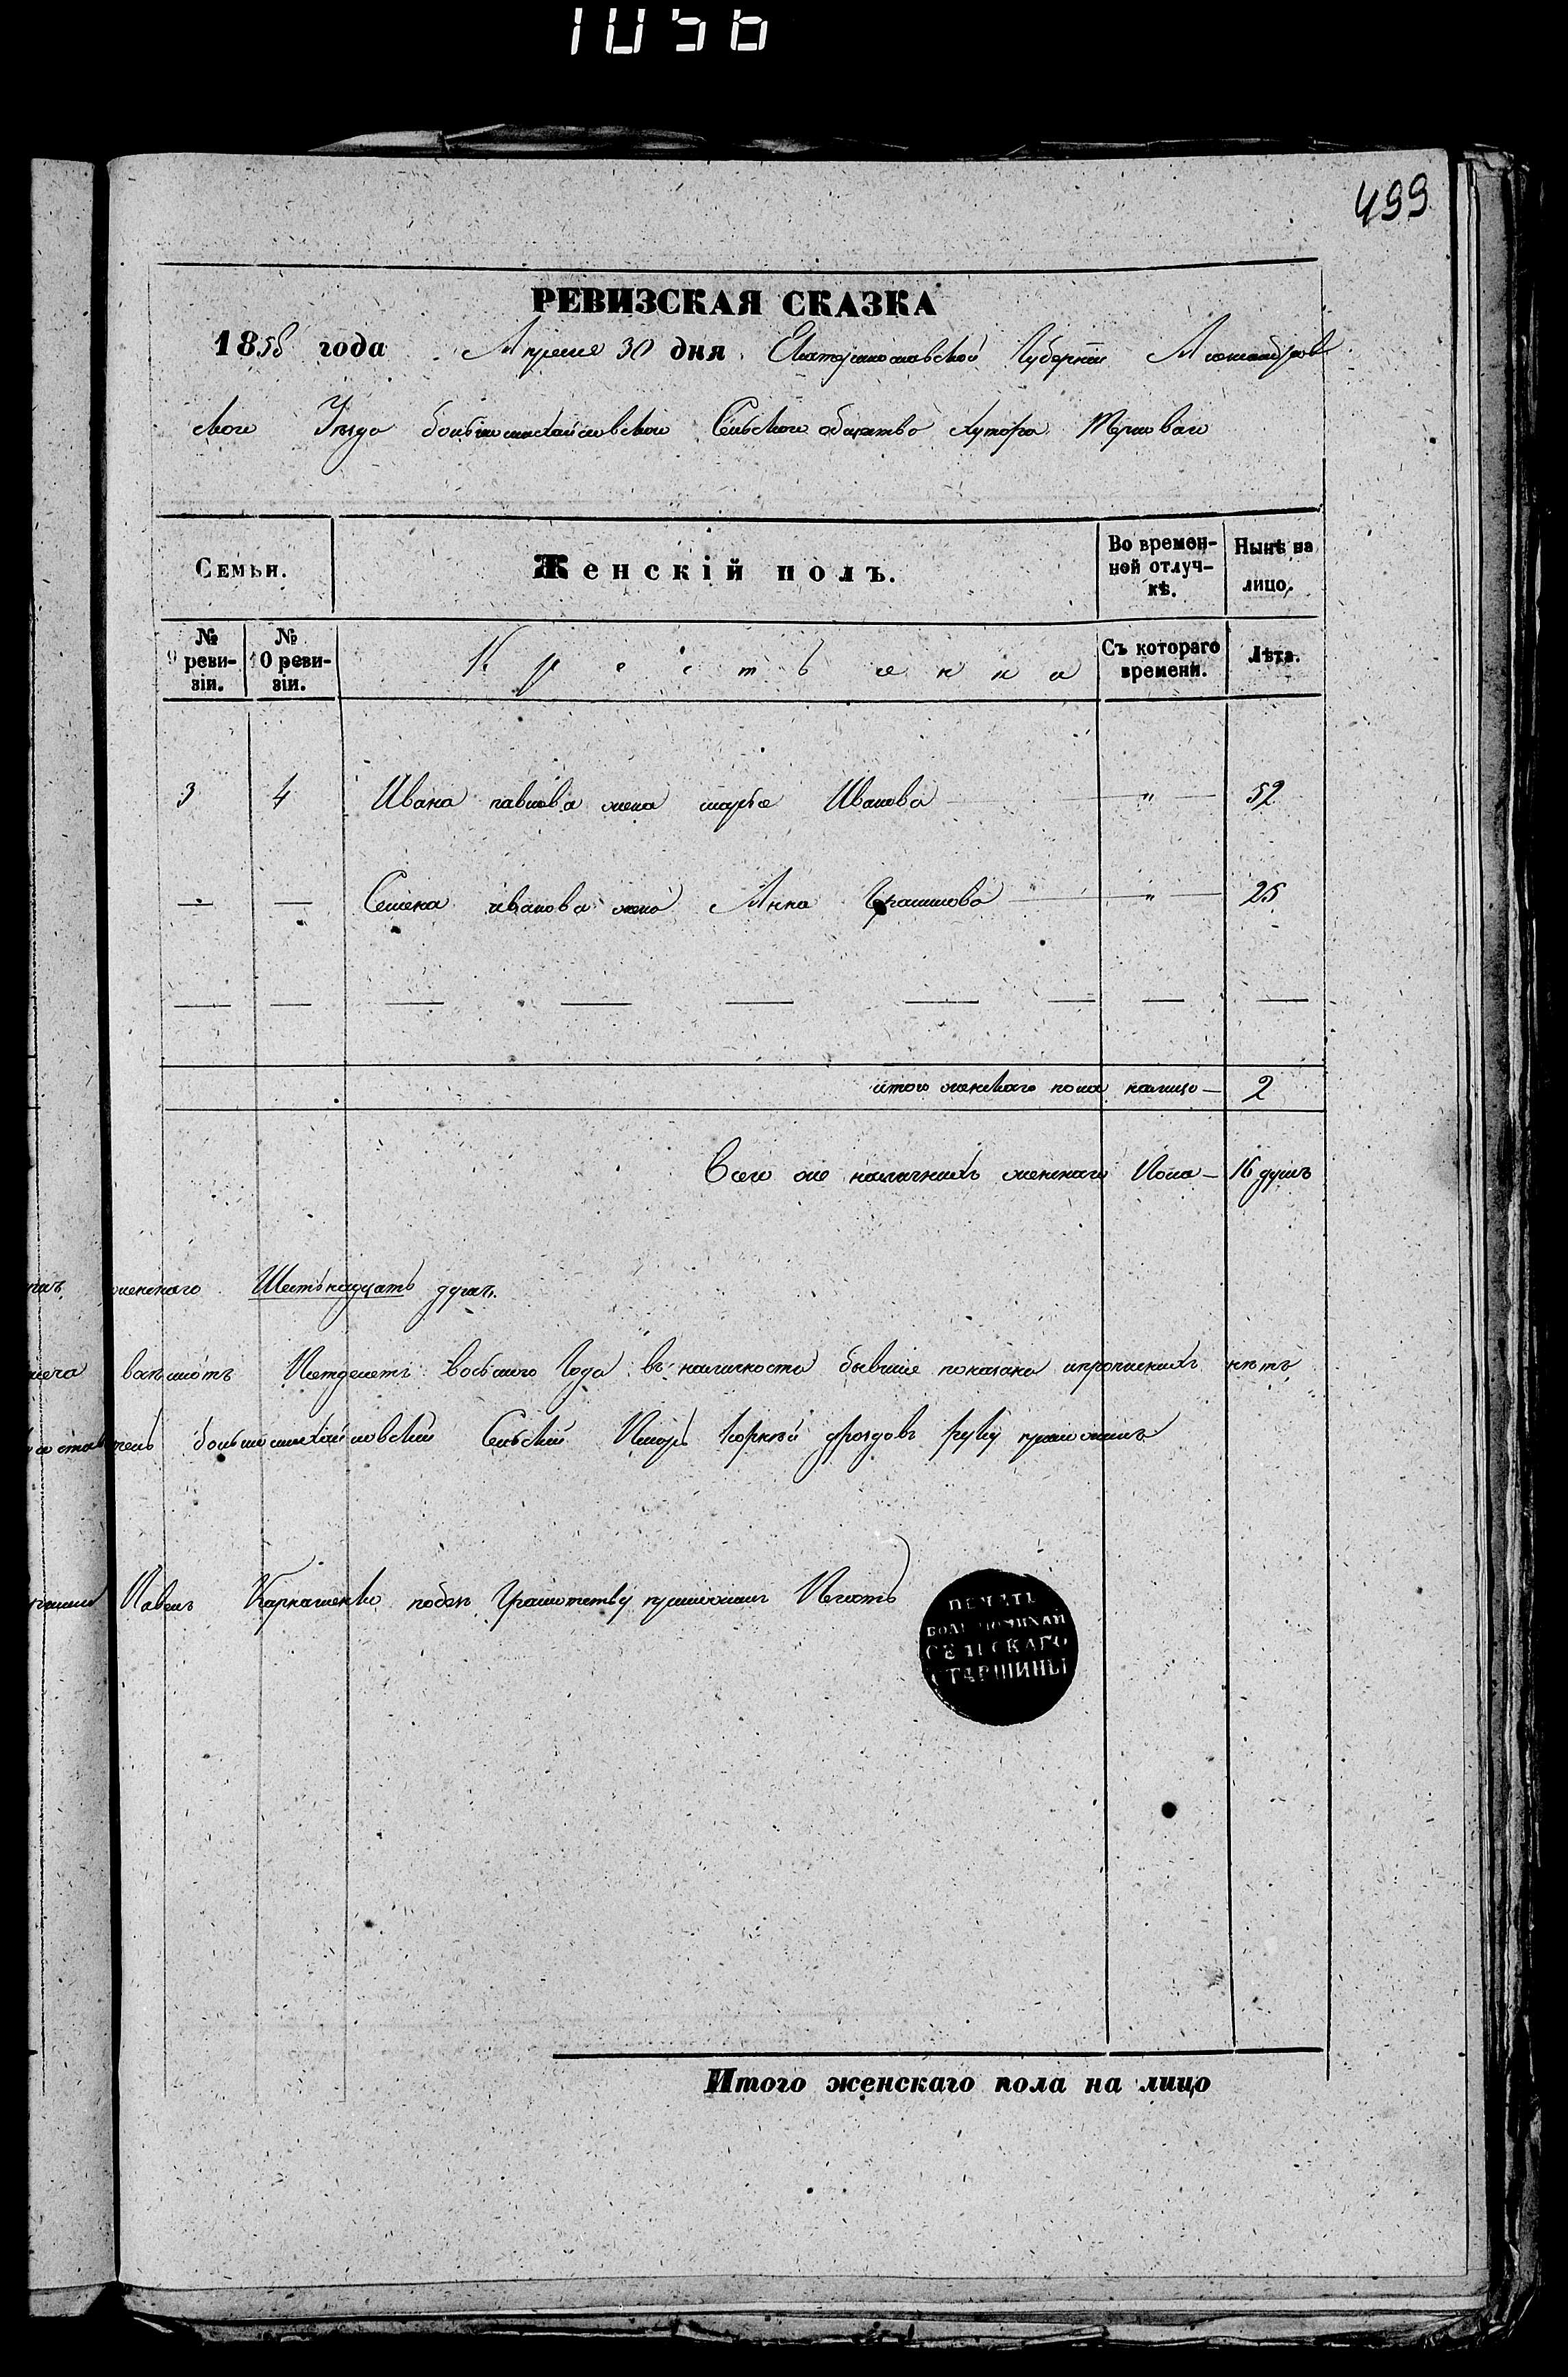 1056
499
РЕВИЗСКАЯ СКАЗКА
1858 года Апреля 30 дня Екатеринославской Губерніи Александров
ского Уезда большемихайловского Сельского общества хутора
Семьи. Женскій полъ. Во времен- Нынѣ на
ной отлуч- лицо.
кѣ.
№ № Крестьенка Съ котораго Лѣта.
9 реви- 10 реви- времени.
зіи. зіи.
3 4 Ивана павлова жена марья Иванова — " — 52
— — Семена иванова жена Анна — " — 25
— — — — — — — — —
итого женскаго пола налицо — 2
Всего же наличныхъ женскаго Пола — 16 душъ
женскаго Шестьнадцать душъ.
Петдесетъ восьмого Года въ наличности бывшие показана ипрописныхъ нѣтъ
большемихайловский Сельский Писарь Корней дроздовъ руку приложилъ
Павелъ Карнашенко побезграмотству приложилъ Печать
ПЕЧАТЬ
БОЛЬШОМИХАЙ
СЕЛЬСКАГО
СТАРШИНЫ
Итого женскаго пола на лицо